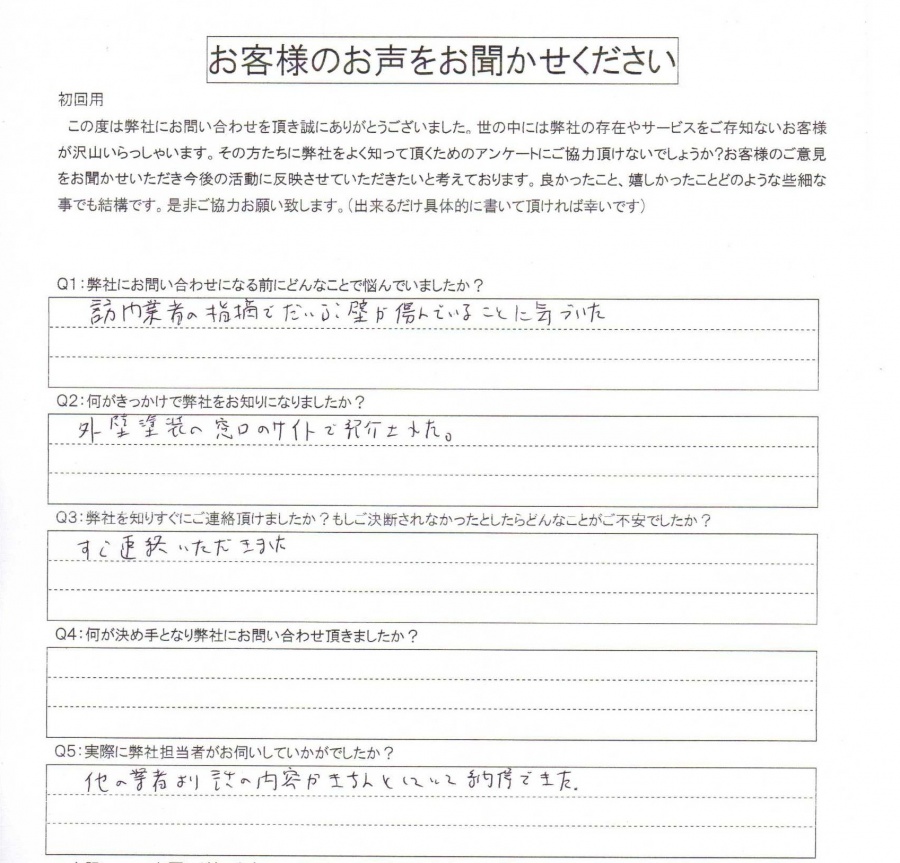 お客様のお声をお聞かせください
初回用
この度は弊社にお問い合わせを頂き誠にありがとうございました。世の中には弊社の存在やサービスをご存知ないお客様
が沢山いらっしゃいます。その方たちに弊社をよく知って頂くためのアンケートにご協力頂けないでしょうか?お客様のご意見
をお聞かせいただき今後の活動に反映させていただきたいと考えております。良かったこと、嬉しかったことどのような些細な
事でも結構です。是非ご協力お願い致します。(出来るだけ具体的に書いて頂ければ幸いです)
Q1:弊社にお問い合わせになる前にどんなことで悩んでいましたか?
訪内業者の指摘でだいぶ壁が傷んでいることに気づいた
Q2:何がきっかけで弊社をお知りになりましたか?
外壁塗装の窓口のサイトで紹介された。
Q3:弊社を知りすぐにご連絡頂けましたか?もしご決断されなかったとしたらどんなことがご不安でしたか?
すぐ連絡いただきました
Q4:何が決め手となり弊社にお問い合わせ頂きましたか?
Q5:実際に弊社担当者がお伺いしていかがでしたか?
他の業者より話の内容がきちんとしていて納得できた。